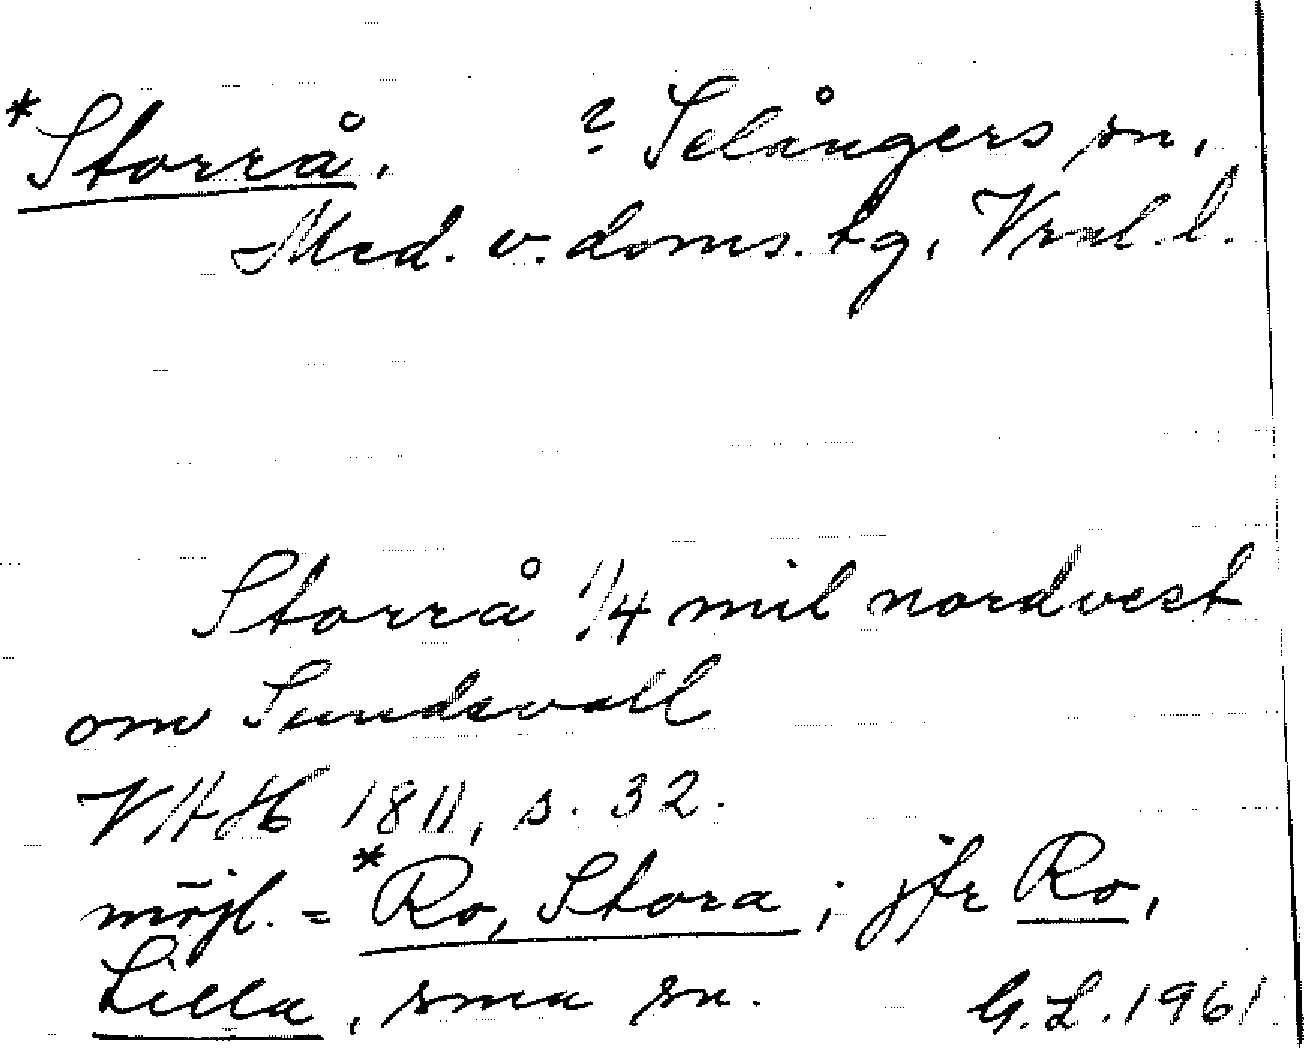 *Storrå. ? Selångers sn,
Med. v. doms. tg, Vnl. l.
Storrå 1/4 mil nordvest
om Sundsvall
VHH 1811, s. 32.
möjl. = *Ro, Stora; jfr Ro,
Lilla, sma sn. G.L. 1961